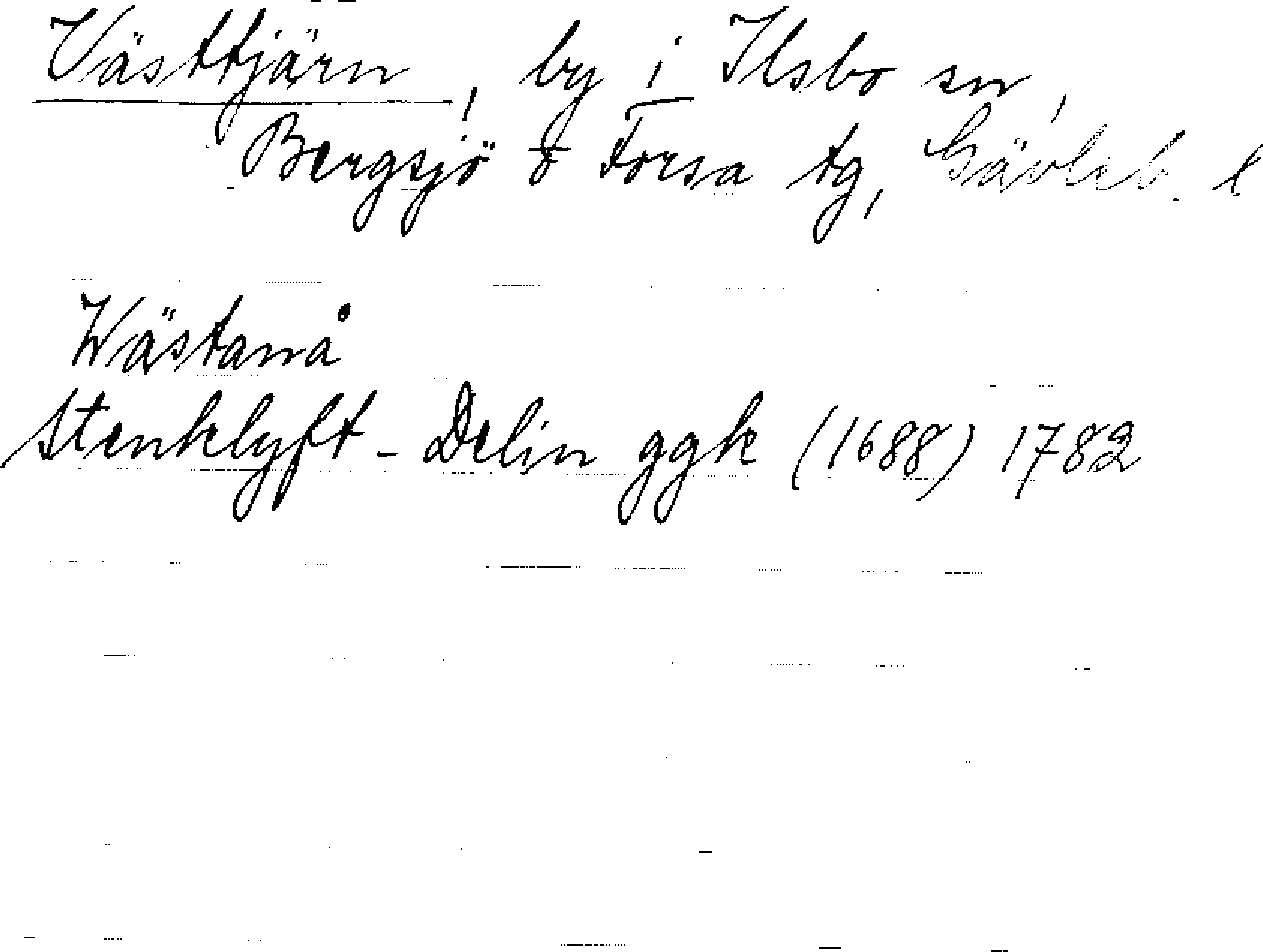 Västtjärn, by i Ilsbo sn,
Bergsjö o Forsa tg, Gävleb. l
Wästanå
Stenklyft - Delin ggk (1688) 1782